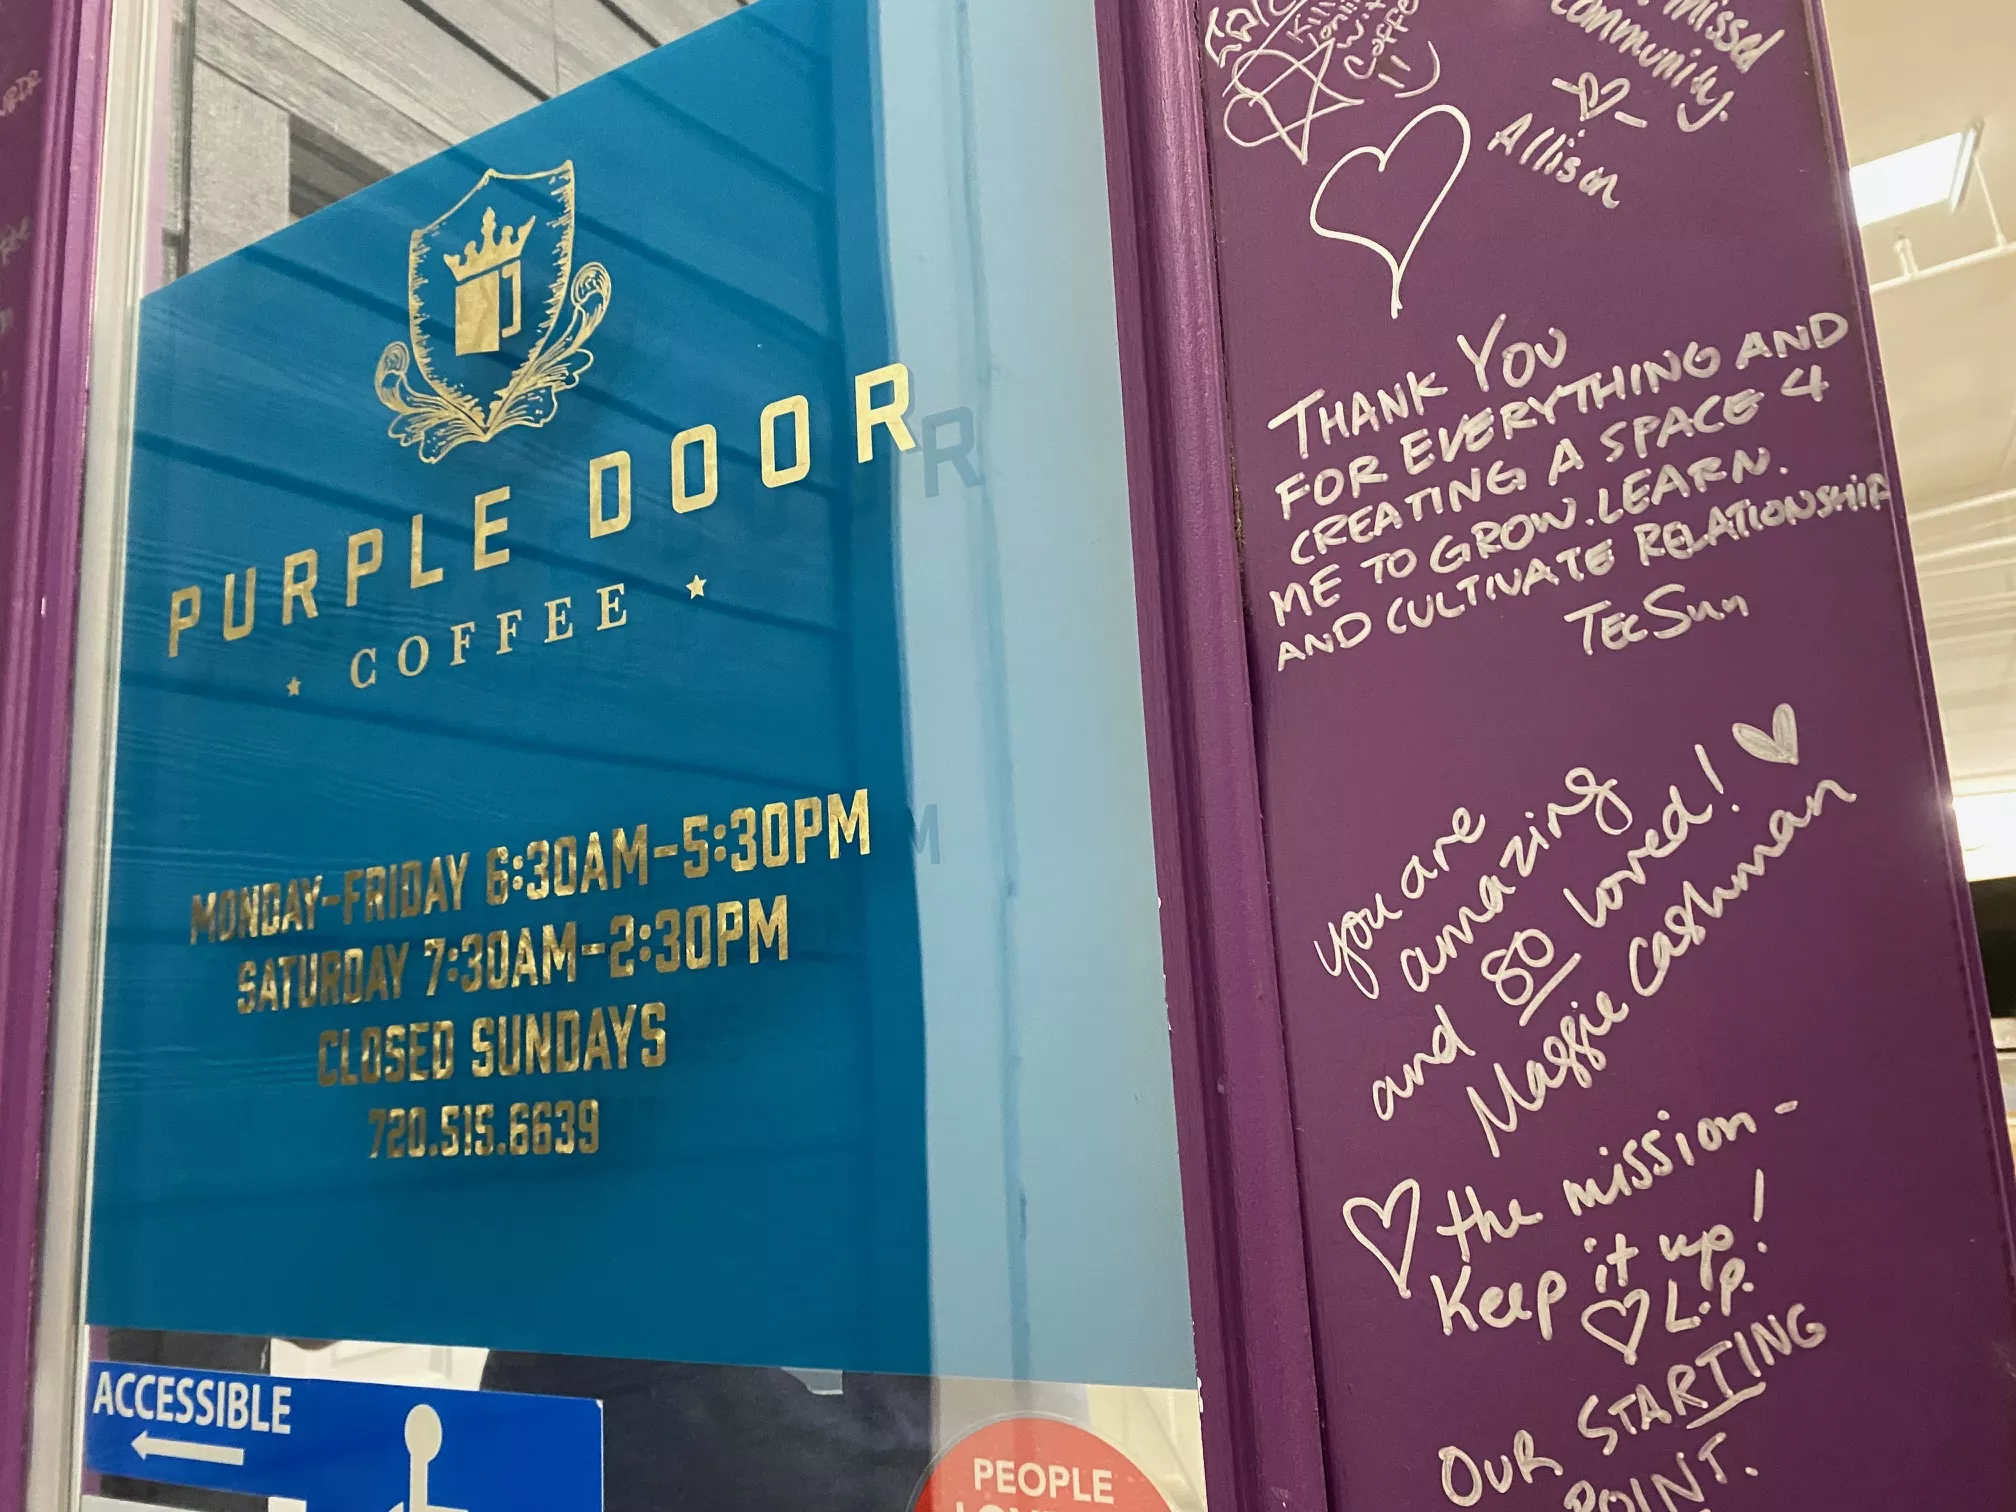 PURPLE DOOR
COFFEE
MONDAY-FRIDAY 6:30AM-5:30PM
SATURDAY 7:30AM-2:30PM
CLOSED SUNDAYS
720.515.6639
ACCESSIBLE
PEOPLE
with
Coffee
missed
community.
Allison
THANK YOU
FOR EVERYTHING AND
CREATING A SPACE 4
ME TO GROW. LEARN.
AND CULTIVATE RELATIONSHIP
TEESUN
you are
amazing
and so loved!
Maggie Cashman
the mission -
Keep it up!
L.P.
OUR STARTING
POINT.